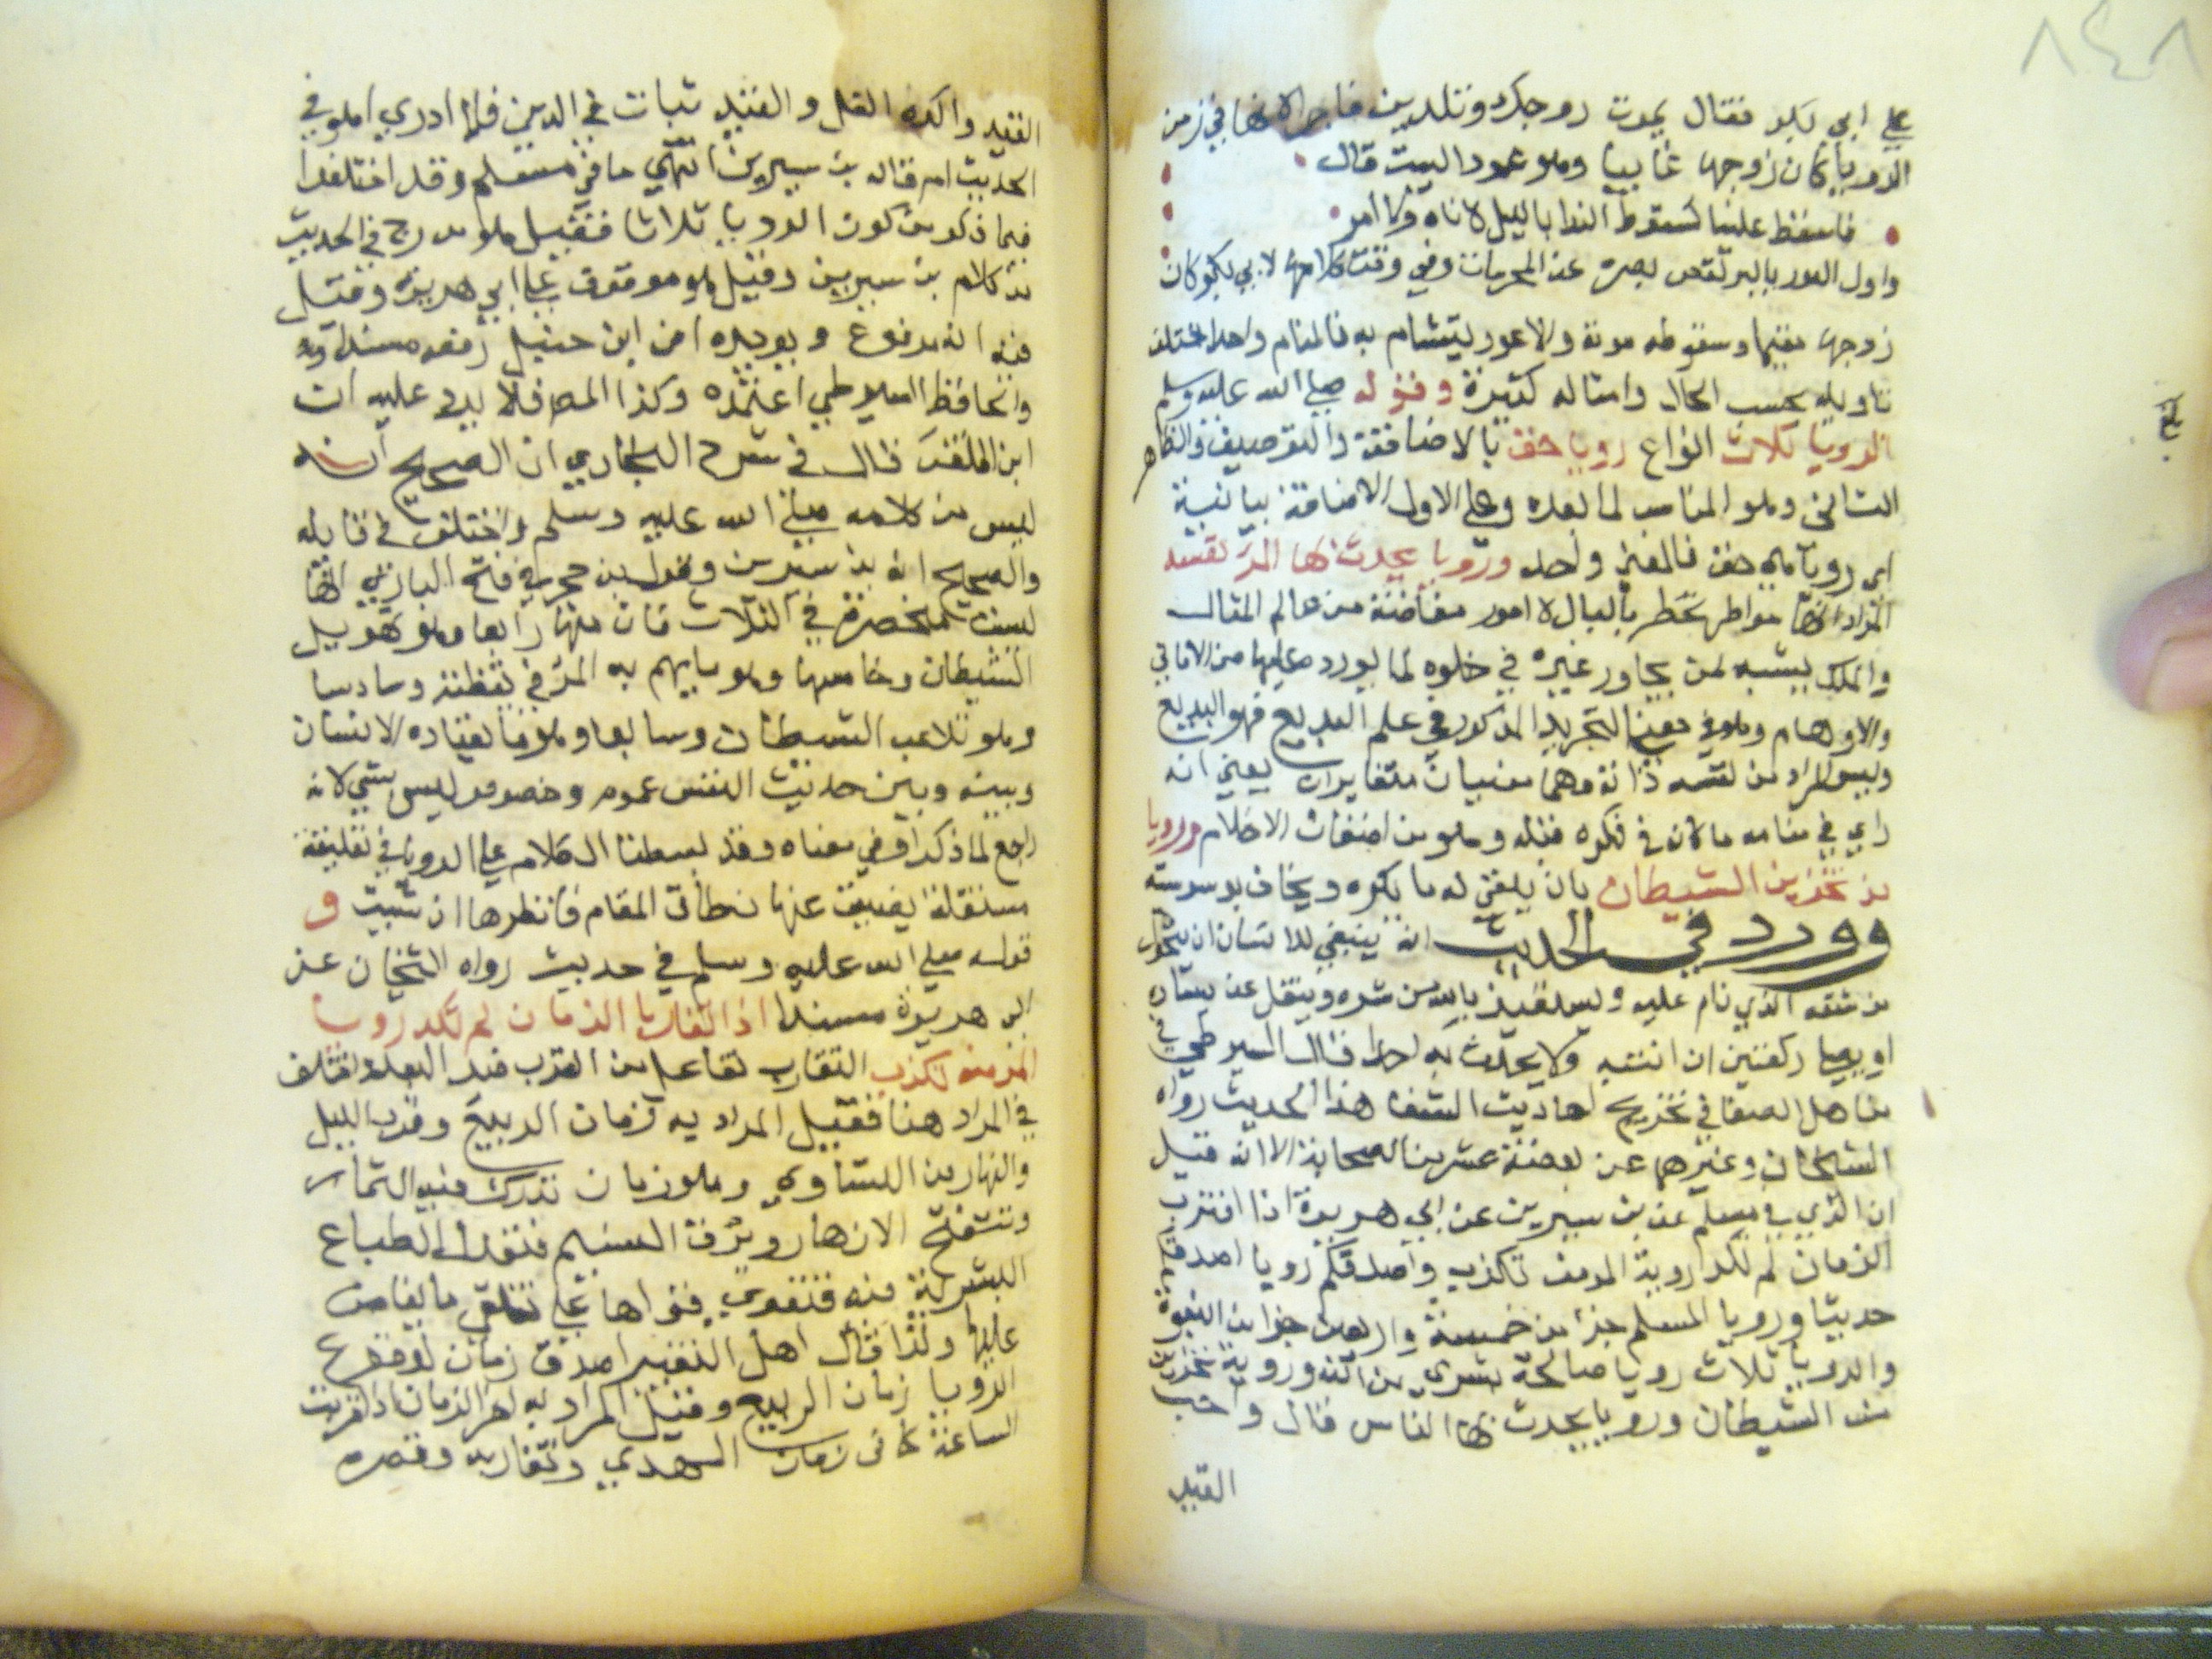 ٨٤٨
علي ابي بكر فقال يموت زوجك وتلدين فاجرا لانها في زمن
الرويا كان زوجها غايبا وهو عمود البيت قال
فاسقط علينا كسقوط الندا بالليل لا ناه ولا امر
واول العور بالبر لغض بصره عن المحرمات وفي وقت كلامها لابي بكر كان
زوجها مقيما وسقوطه موته والاعور يتشام به فالمنام واحد اختلف
تاويله بحسب الحال وامثاله كثيرة وقوله صلي الله عليه وسلم
الرويا ثلاث انواع رويا حق بالاضافة والتوصيف والظاهر
الثاني وهو المناسب لما بعده وعلي الاول الاضافة بيانية
اي رويا هي حق فالمعني واحد ورويا يحدث بها المر نفسه
المراد انها خواطر تخطر بالبال لا امور مفاضة من عالم المثال
والملك يشبه لمن يجاور غيره في خلوه لما يورد عليها من الاماني
والاوهام وهو في معني التجريد المذكور في علم البديع فهو البديع
وليس المراد من نفسه ذاته وهما معنيان متغايران يعني انه
راي في منامه ما كان في فكره قبله وهو من اضغاث الاحلام ورويا
من تخزين الشيطان بان يلقي له ما يكره ويخاف بوسوسته
وورد في الحديث انه ينبغي للانسان ان يتحول
من شقه الذي نام عليه وليستعيذ بالله من شره ويتفل عن يساره
او يصلي ركعتين ان انتبه ولا يحدث به احدا قال السيوطي
مناهل الصفا في تخريج احاديث الشفا هذا الحديث رواه
الشيخان وغيرهما عن بضعة عشر من الصحابة الا انه قيل
ان الذي في مسلم عن بن سيرين عن ابي هريرة اذا اقترب
الزمان لم تكد روية المومن تكذب واصدقكم رويا اصدقكم
حديثا ورويا المسلم جزء من خمسة واربعين جزا من النبوة
والرويا ثلاث رويا صالحة بشري من الله وروية تخزين
من الشيطان ورويا يحدث بها الناس قال واحب
القيد
القيد واكره الغل والقيد ثبات في الدين فلا ادري اهو في
الحديث ام قاله بن سيرين انتهي ما في مسلم وقد اختلفوا
فيما ذكر من كون الرويا ثلاثا فقيل هو مدرج في الحديث
من كلام بن سيرين وقيل هو موقوف علي ابي هريرة وقيل
فيه انه مرفوع ويويده ان ابن حنبل رفعه مسندا
والحافظ السيوطي اعتمده وكذا المص فلا يرد عليه ان
ابن الملقن قال في شرح البخاري ان الصحيح انه
ليس من كلامه صلي الله عليه وسلم واختلف في قايله
والصحيح انه بن سيرين وقول بن حجر في فتح الباري انها
ليست منحصرة في الثلاث فان منها رابعا وهو تهويل
الشيطان وخامسها وهو ما يهم به المر في يقظته وسادسا
وهو تلاعب الشيطان وسابعا وهو ما يعتاده الانسان
وبينه وبين حديث النفس عموم وخصوص ليس بشي لانه
راجع لما ذكر او في معناه وقد بسطنا الكلام علي الرويا في تعليقة
مستقلة يضيق عنها نطاق المقام فانظرها ان شيت و
قوله صلي الله عليه وسلم في حديث رواه الشيخان عن
ابي هريرة مسندا اذا تقارب الزمان لم تكد رويا
المومن تكذب التقارب تفاعل من القرب ضد البعد واختلف
في المراد هنا فقيل المراد به زمان الربيع وقرب الليل
والنهار من التساوي وهو زمان تدرك فيه الثمار
وتتفتح الازهار ويرق النسيم فتعتدل الطباع
البشرية فيه فتقوي قواها علي تلقي ما يفاض
عليها ولذا قال اهل التعبير اصدق زمان لوقوع
الرويا زمان الربيع وقيل المراد به اخر الزمان اذا قربت
الساعة كما في زمان المهدي وتقاربه وقصره